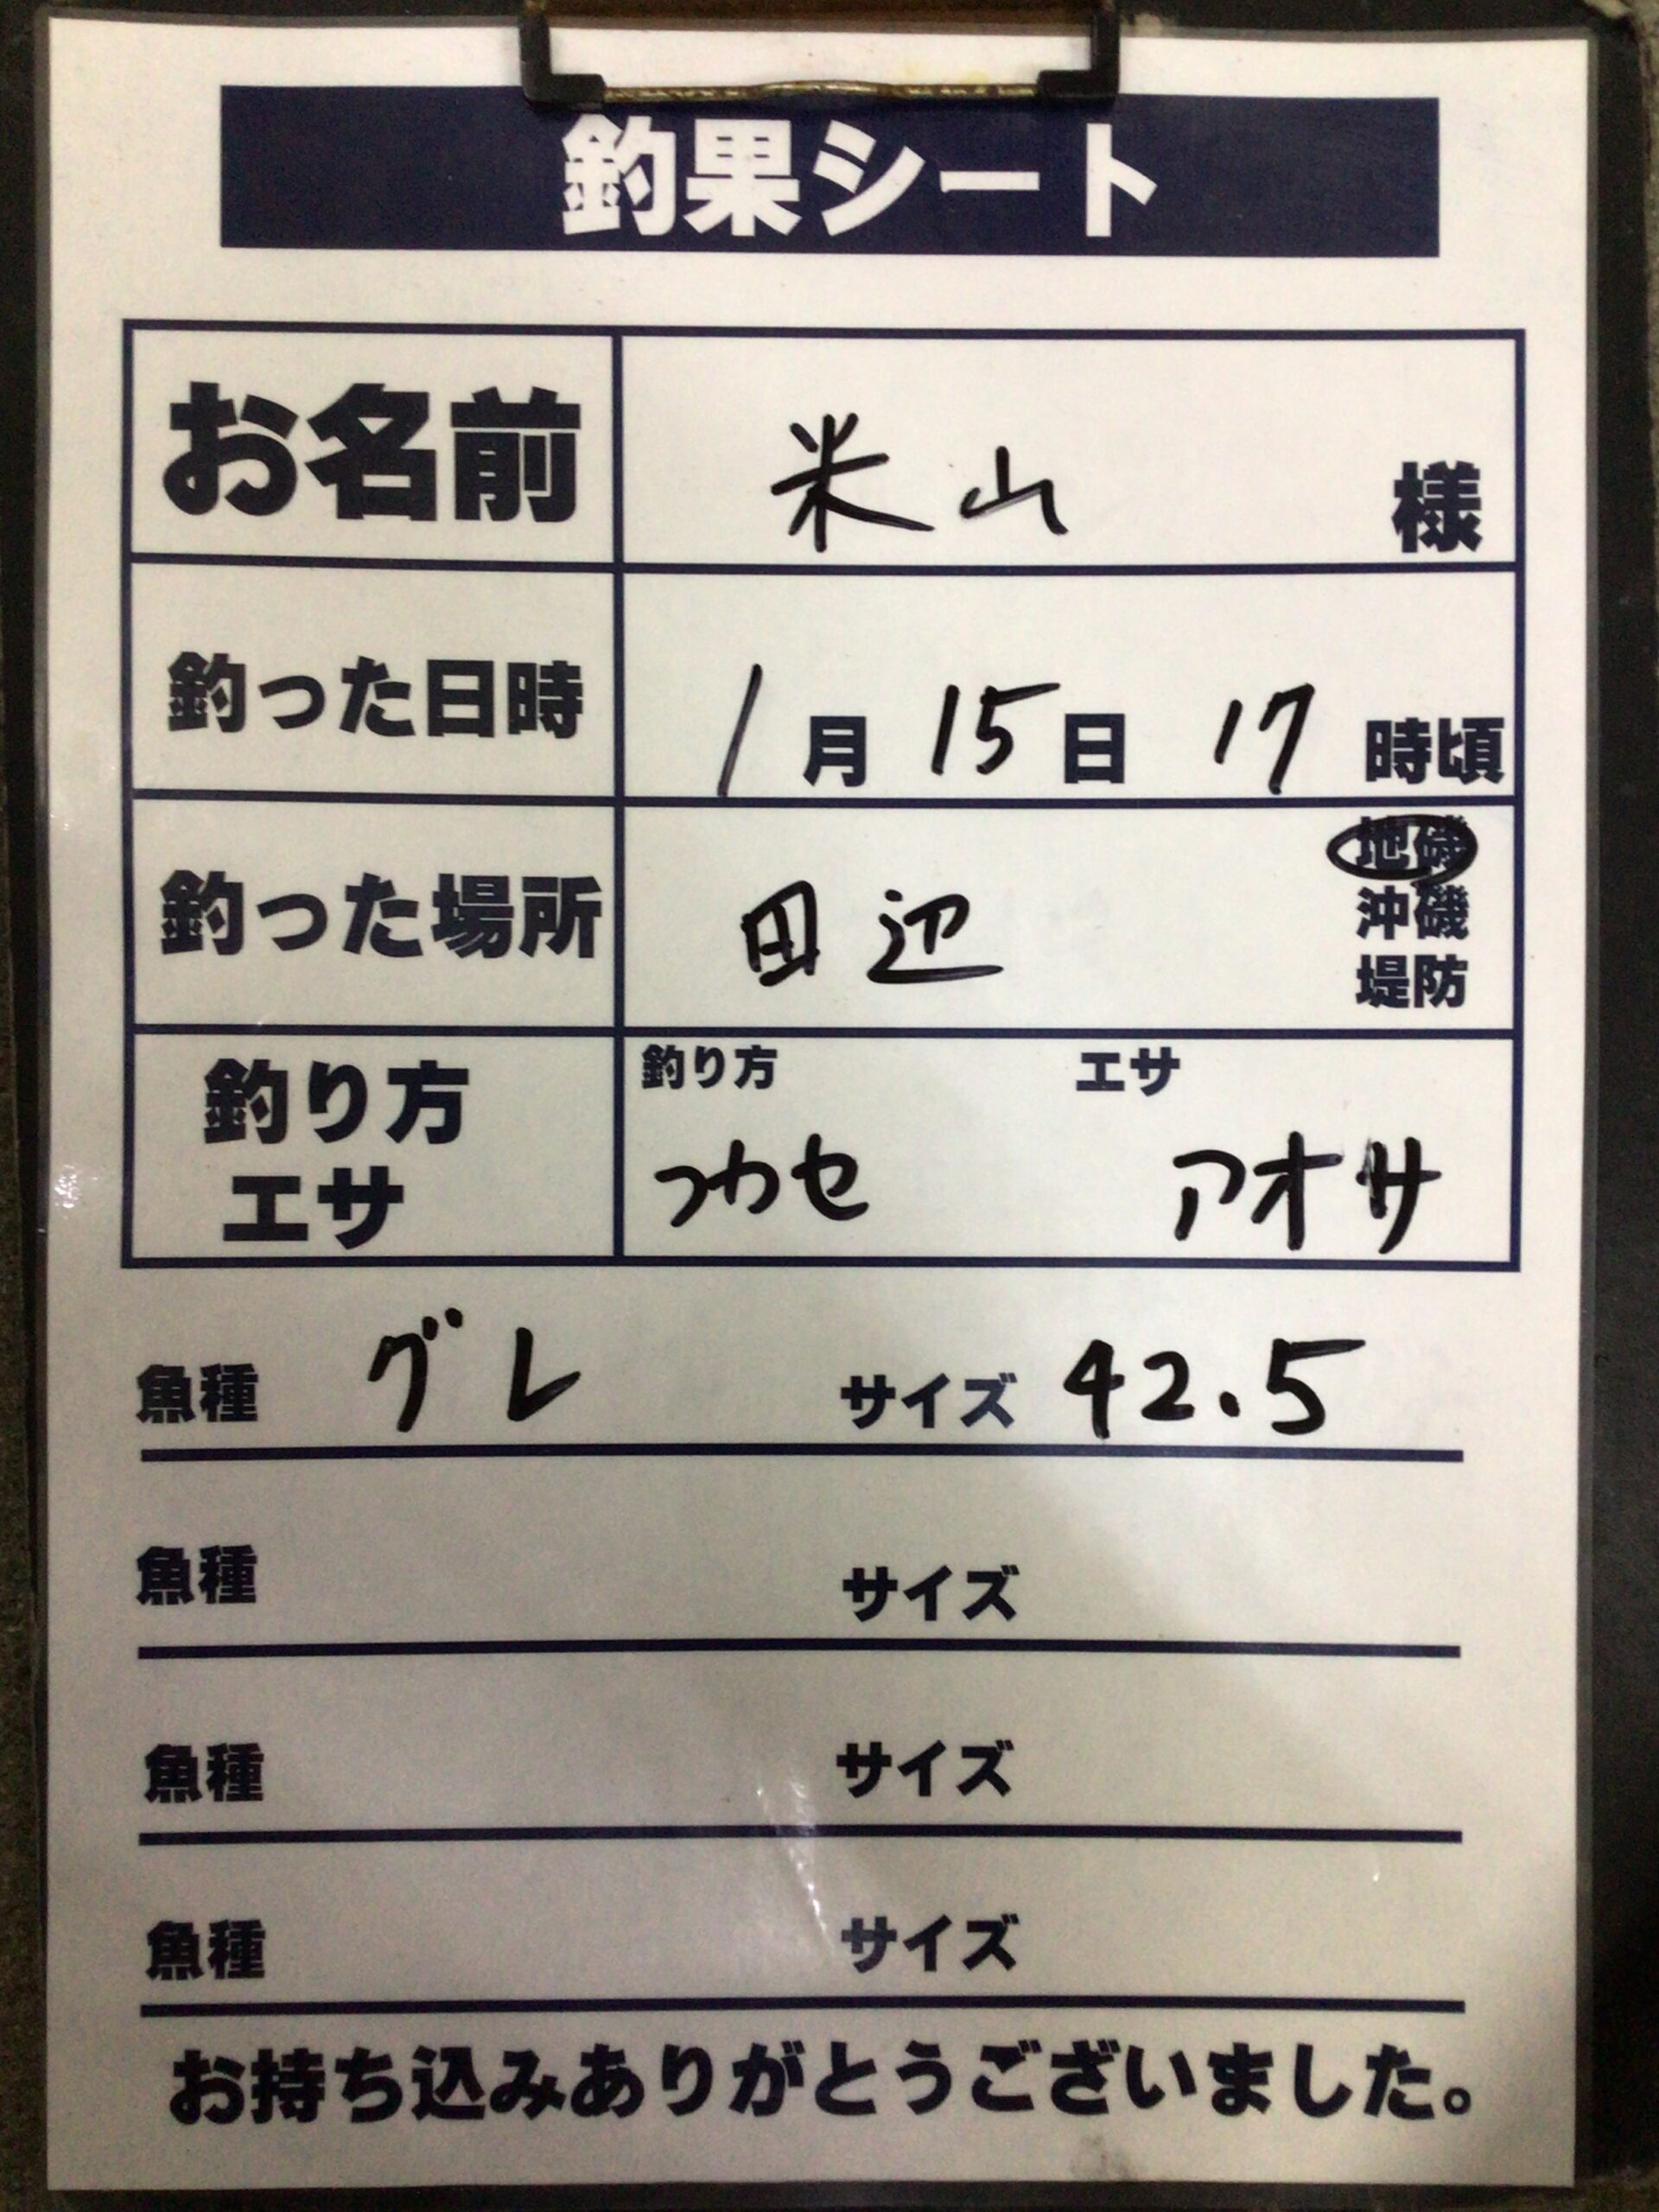 釣果シート
お名前 米山 様
釣った日時 1月15日 17時頃
釣った場所 田辺 地磯
沖磯
堤防
釣り方 エサ
釣り方
エサ
フカセ アオサ
魚種 グレ サイズ 42.5
魚種 サイズ
魚種 サイズ
魚種 サイズ
お持ち込みありがとうございました。